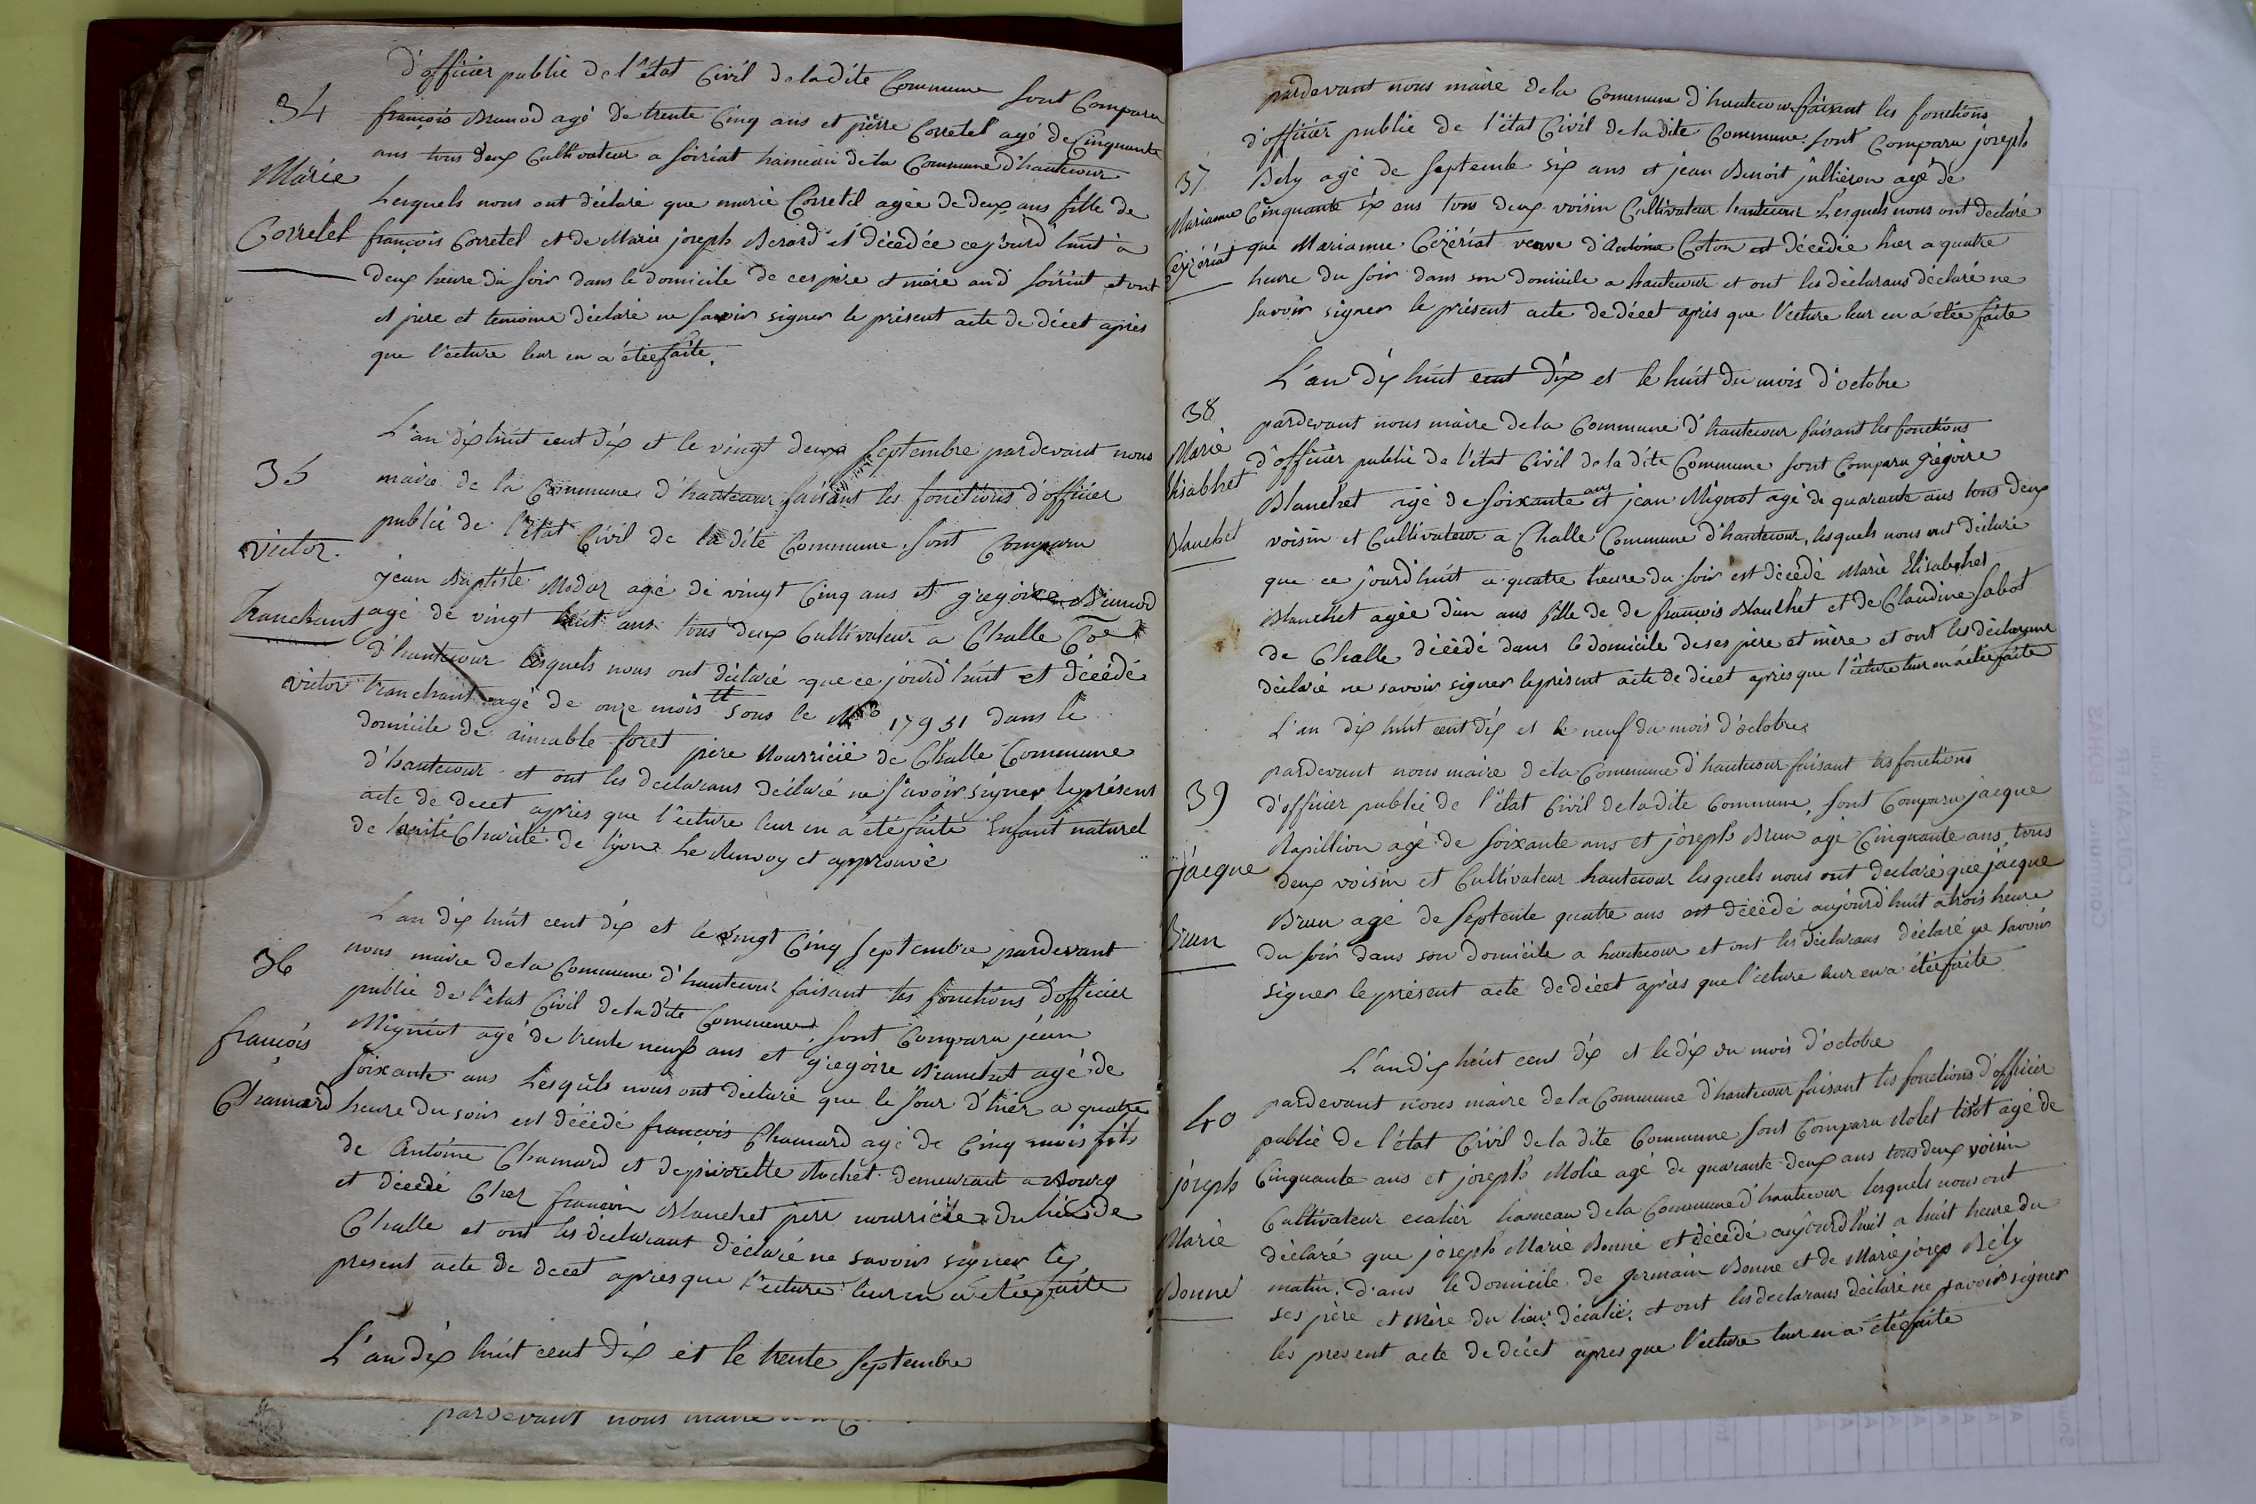 d'officier public de l'état Civil de la dite Commune sont Comparu
34
françois Brunod agé de trente Cinq ans et piérre Corretel agé de Cinquante
ans tous deux Cultivateur a soiriat hameau de la Commune d'hautecour
Marie
Lesquels nous ont déclaré que marie Corretel agée de deux ans fille de
Corretel
françois Corretel et de Marie joseph Berard et décédée cejourd'huit à
deux heure du soir dans le domicile de ces père et mère aud soiriat et ont
et pere et temoins déclaré ne savoir signer le présent acte de décet après
que l'ecture leur en a étée faite.
L'an dix huit cent dix et le vingt deux septembre pardevant nous
35
maire de la Commune d'hautecour faisant les fonctions d'officier
public de l'état Civil de la dite Commune sont Comparu
victor
jean Baptiste Modar agé de vingt Cinq ans et gregoire Brunod
Tranchant
agé de vingt huit ans tous deux Cultivateur a Challe Coe
d'hautecour lesquels nous ont déclaré que ce jourd'huit et décédé
victor tranchant agé de onze mois sous le No 17951 dans le
domicile de aimable foret père nourricié de Challe Commune
d'hautecour et ont les declarans déclaré ne savoir signer le présent
acte de decet apries que l'ecture leur en a été faite Enfant naturel
de Charité de lyon Le Renvoy et approuvé
L'an dix huit cent dix et le vingt Cinq septembre pardevant
36
nous maire de la Commune d'hautecour faisant les fonctions d'officier
public de l'état Civil de la dite Commune sont Comparu jean
françois
Migniot agé de trente neuf ans et gregoire Blanchet agé de
soixante ans Lesquels nous ont déclaré que le jour d'hier a quatre
Chamard
heure du soir est décédé françois Chamard agé de Cinq mois fils
de Antoine Chamard et de pierrette Rochet demeurant a Bourg
et décédé Chez françois Blanchet père nourricier du lieu de
Challe et ont les déclarant déclaré ne savoir signer le
present acte de decet apres que l'ecture leur en a étée faite
L'an dix huit cent dix et le trente septembre
pardevant nous maire
pardevant nous maire de la Commune d'hautecour faisant les fonctions
d'officier public de l'état Civil de la dite Commune sont Comparu joseph
37
Bely agé de septente six ans et jean Benoit jullieron agé de
Marianne
Cinquante six ans tous deux voisin Cultivateur hautecour Lesquels nous ont declaré
Cézériat
que Marianne Cézériat veuve d'Antoine Coton est décédée hier a quatre
heure du soir dans son domicile a hautecour et ont les déclarans déclaré ne
savoir signer le présent acte de décet apris que l'ecture leur en a étée faite
L'an dix huit cent dix et le huit du mois d'octobre
38
pardevant nous maire de la Commune d'hautecour faisant les fonctions
Marie
d'officier public de l'état Civil de la dite Commune sont Comparu grégoire
Elisabhet
Blanchet agé de soixante ans et jean Mignot agé de quarante ans tous deux
Blanchet
voisin et Cultivateur a Challe Commune d'hautecour, lesquels nous ont déclaré
que ce jourd'huit a quatre heure du soir est décédé Marie Elisabhet
Blanchet agée d'un ans fille de de françois Blanchet et de Claudine Sabot
de Challe décédé dans le domicile de ses père et mère et ont les déclarans
déclaré ne savoir signer le présent acte de décet apris que l'ecture leur en a étée faite
L'an dix huit cent dix et le neuf du mois d'octobre
pardevant nous maire de la Commune d'hautecour faisant les fonctions
39
d'officier public de l'état Civil de la dite Commune, sont Comparu jacque
Rapillion agé de soixante ans et joseph Brun agé Cinquante ans, tous
jacque
deux voisin et Cultivateur hautecour lesquels nous ont declaré que jacque
Brun
Brun agé de septente quatre ans est décédé aujourd'huit a trois heure
du soir dans son domicile a hautecour et ont les déclarans déclaré ne savoir
signer le présent acte de décet après que l'ecture leur en a étée faite
L'an dix huit cent dix et le dix du mois d'octobre
pardevant nous maire de la Commune d'hautecour faisant les fonctions d'officier
40
public de l'état Civil de la dite Commune sont Comparu Molet agé de
joseph
Cinquante ans et joseph Molie agé de quarante deux ans tous deux voisin
Cultivateur ecalier hameau de la Commune d'hautecour lesquels nous ont
Marie
déclaré que joseph Marie Bonne et décédé aujourd'huit a huit heure du
Bonne
matin. dans le domicile de germain Bonne et de Marie josep Bély
ses père et mère du lieu d'écalié, et ont les declarans déclaré ne savoir signer
les present acte de décet apres que l'ecture leur en a étée faite